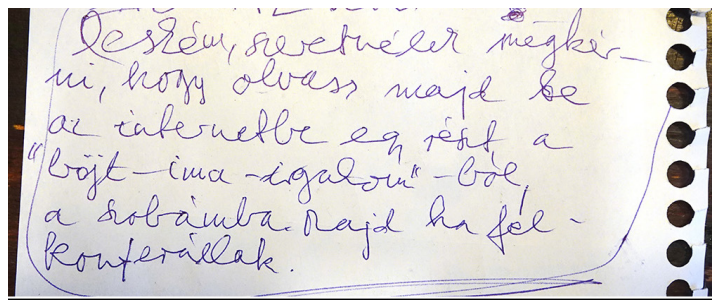 Öcsém, szeretnélek megkér-
ni, hogy olvass majd be
az internetbe egy részt a
"böjt-ima-irgalom"-ból,
a szobámba. Majd ha fel-
konferállak.